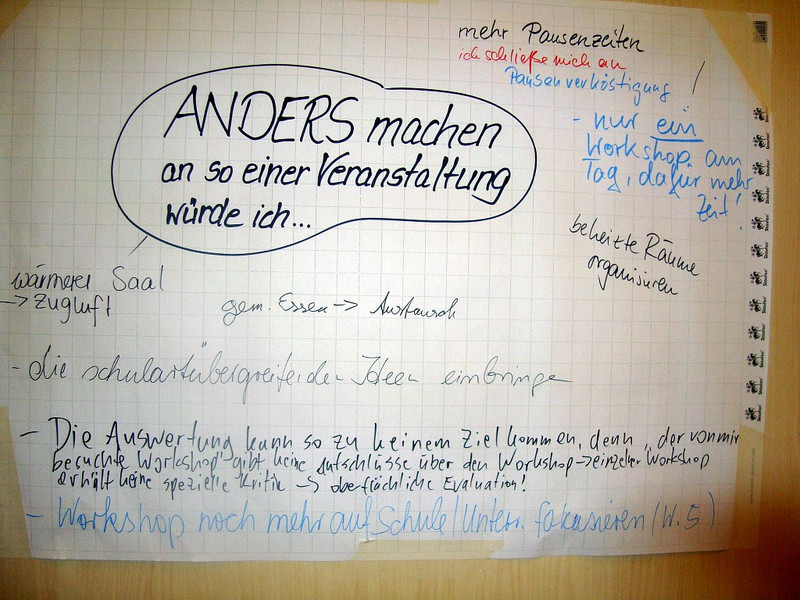 mehr Pausenzeiten
ich schließe mich an
Pausenverköstigung
- nur ein
Workshop am
Tag, dafür mehr
Zeit!
ANDERS machen
an so einer Veranstaltung
würde ich...
beheizte Räume
organisieren
wärmerer Saal
-> Zugluft
gem. Essen -> Austausch
- die schulartübergreifenden Ideen einbringen
- Die Auswertung kann so zu keinem Ziel kommen, denn "der von mir
besuchte Workshop" gibt keine Aufschlüsse über den Workshop -> einzelner Workshop
erhält keine spezielle Kritik -> oberflächliche Evaluation!
- Workshop noch mehr auf Schule/Unterr. fokusieren (W.5)